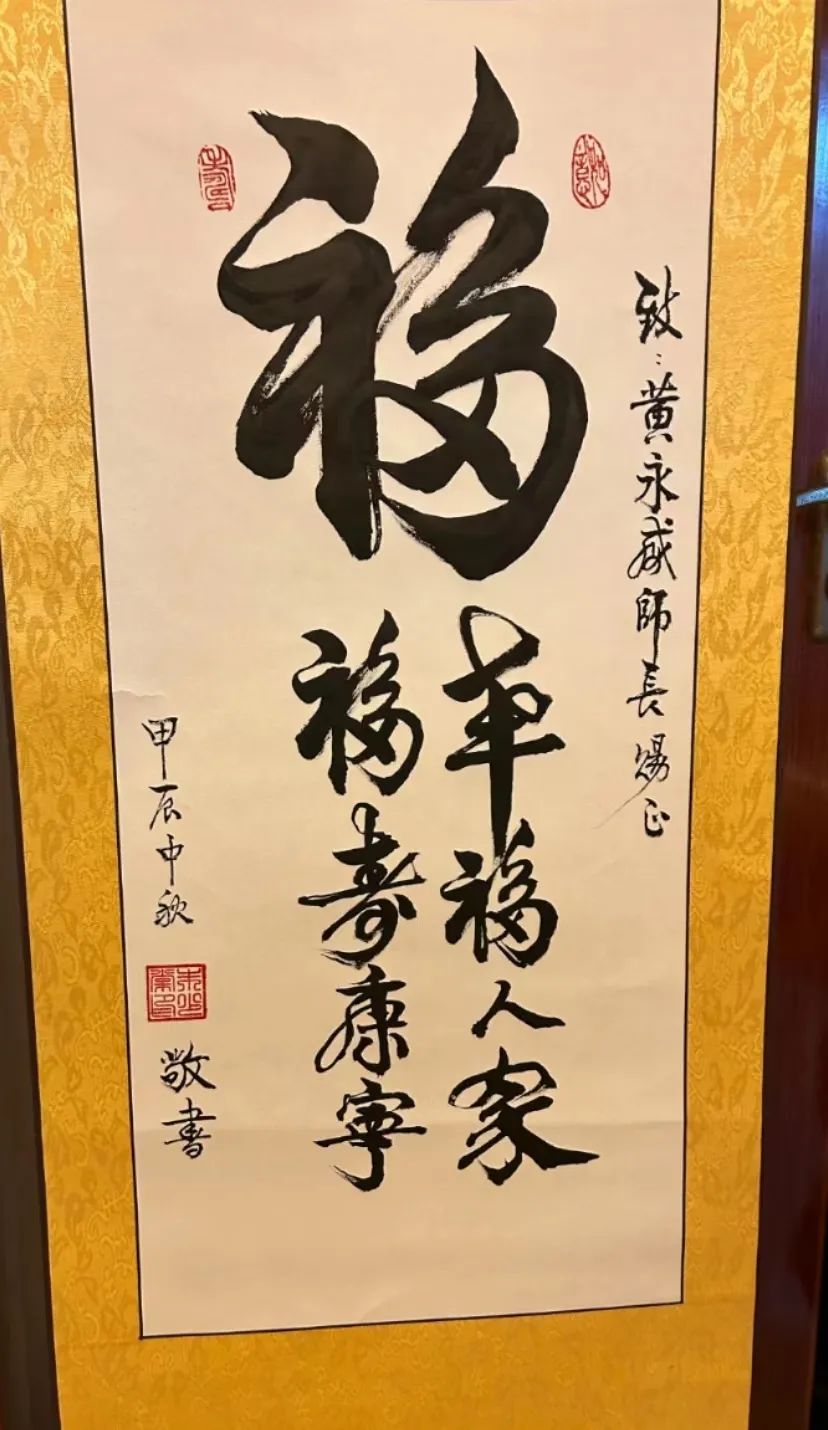 福
如意
致：黄永威師長賜正
福人家
福壽康寧
甲辰中秋
敬書